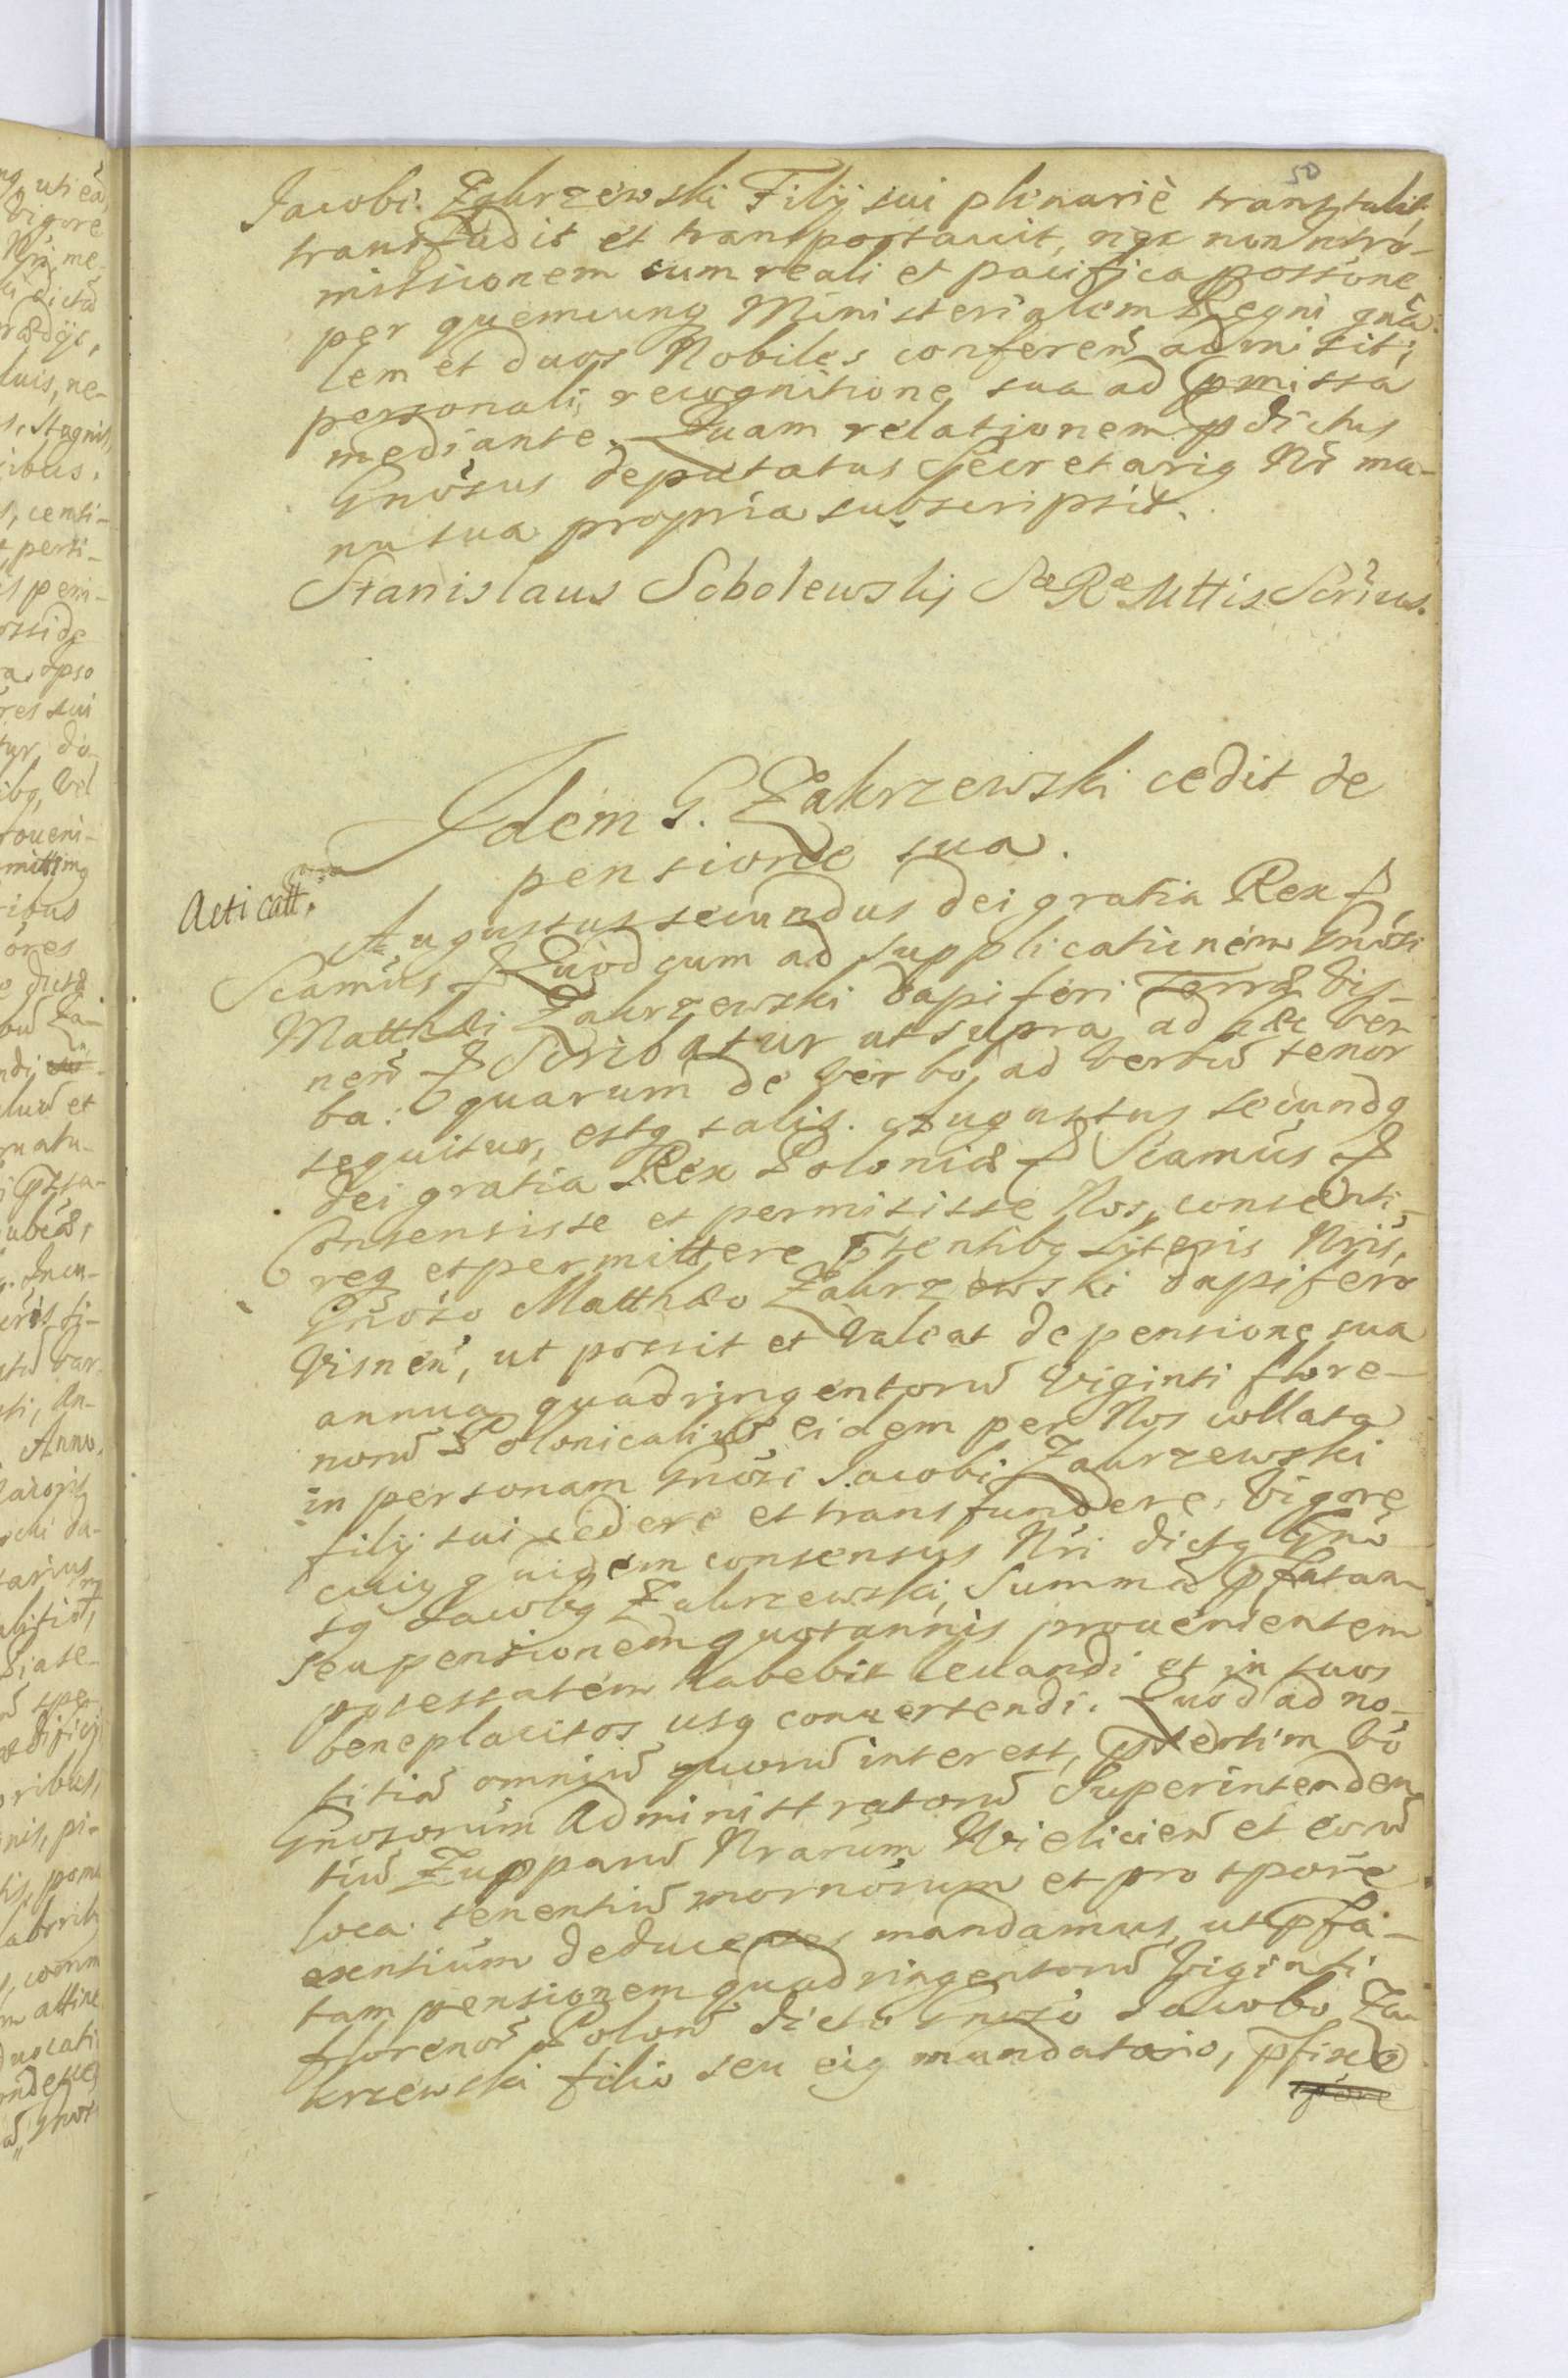 50
Jacobi Zakrzewski Filij sui plenariè transtulit
transfudit et transportauit, nec non intro-
missionem cum reali et pacifica possone
per quemcunq Ministerialem Regni gnã
lem et duos Nobiles conferen̄ admisit;
personali, recognitione sua ad pmissa
mediante. Quam relationem pdictus
Gnōsus deputatus Secretariq Nr̄ ma-
nu sua propria subscripsit.
Stanislaus Sobolewskj Sæ Ræ Mttis Scrius.
Idem G. Zakrzewski cedit de
pensione sua.
Acticatt.
Augustus secundus dei gratia Rex &
Scamus & Quod cum ad supplicationem Gnōsi
Matthæi Zakrzewski dapiferi Terræ Vis-
nen̄ & Scribatur ut supra ad hæc ver
ba: quarum de verbo ad verbū tenor
sequitur, estq talis. Augustus secundq
dei gratia Rex Poloniæ & Scamus &
Consensisse et permisisse Nos, consenti-
req et permittere pntibq Lyteris Nris,
Gnōso Matthæo Zakrzewski dapifero
Visnen̄, ut possit et valeat de pensione sua
annua quadringentorū viginti flore-
norū Polonicaliū eidem per Nos collata
in personam Gnōsi Jacobi Zakrzewski
filij sui cedere et transfundere, vigore
cuiq quidem consensus Nri dictq Gnō
sq Jacobq Zakrzewski, Summā pfatam
seu pensionem quotannis prouenientem
potestatem habebit leuandi et in suos
beneplacitos usq conuertendi. Quod ad no-
titiā omniū quorū interest, psertim vō
Gnosorum Administratorū Superintenden
tiū Zupparū Nrarum Vieliciēn et eorū
loca tenentiū mornorum et pro tpore
exentium deducentes mandamus, ut pfa-
tam pensionem quadringentorū viginti
florenor̄ Polon̄ dicto Gnoso Jacobo Za
krzewski filio seu eiq mandatario, pfixo